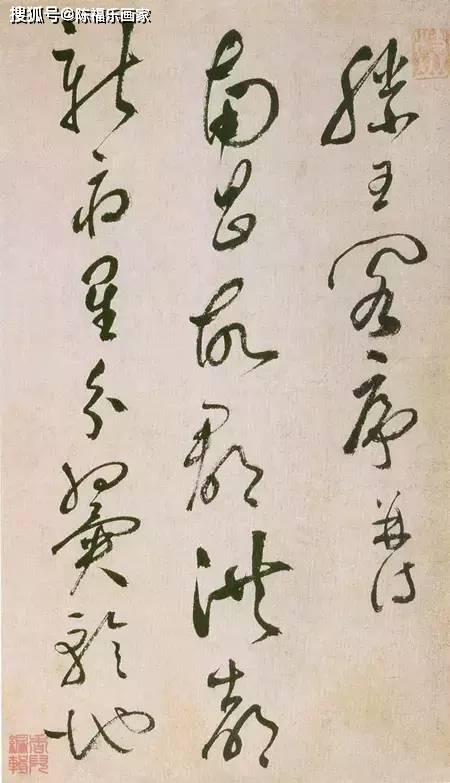 搜狐号@陈福乐画家
滕王閣序 并詩
南昌故郡洪都
新府星分翼軫地